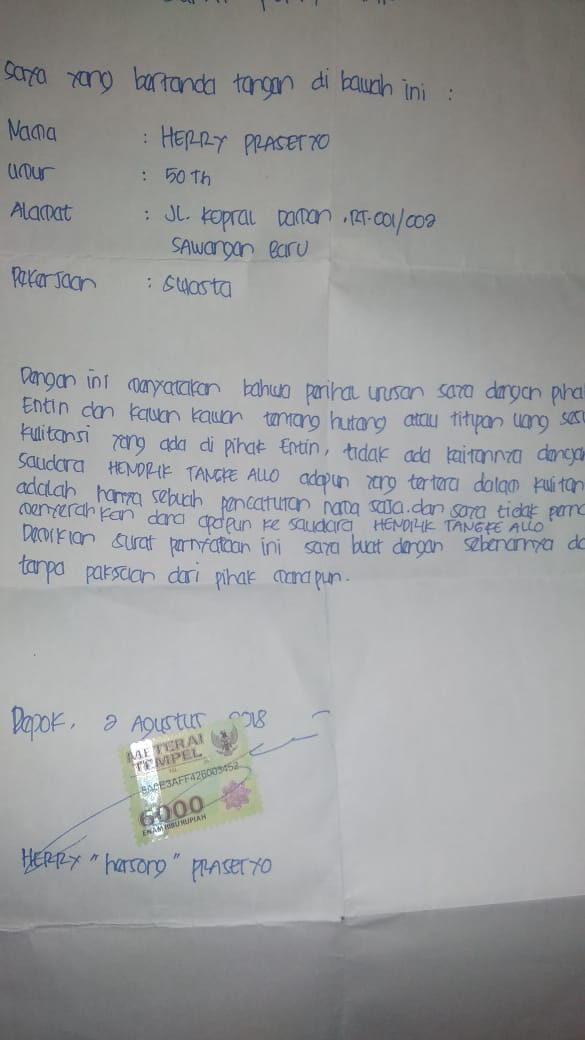 saya yang bertanda tangan di bawah ini :
Nama : HERRY PRASETYO
umur : 50 Th
Alamat : JL. Kopral Daman .RT.001/002
SAWangan Baru
Pekerjaan : swasta
Dengan ini menyatakan bahwa perihal urusan saya dengan piha
Entin dan kawan kawan tentang hutang atau titipan uang
kwitansi yang ada di pihak Entin, tidak ada kaitannya dengan
saudara HENDRIK TANGKE ALLO adapun yang tertera dalam kuitan
adalah hanya sebuah pencatutan nama saja. dan saya tidak perna
menyerahkan dana apapun ke saudara HENDRIK TANGKE ALLO
Demikian surat pernyataan ini saya buat dengan sebenarnya da
tanpa paksaan dari pihak manapun.
Depok, 2 Agustus 2018
METERAI
TEMPEL
3AFF426003452
6000
ENAM RIBU RUPIAH
HERRY "hersong" PRASETYO